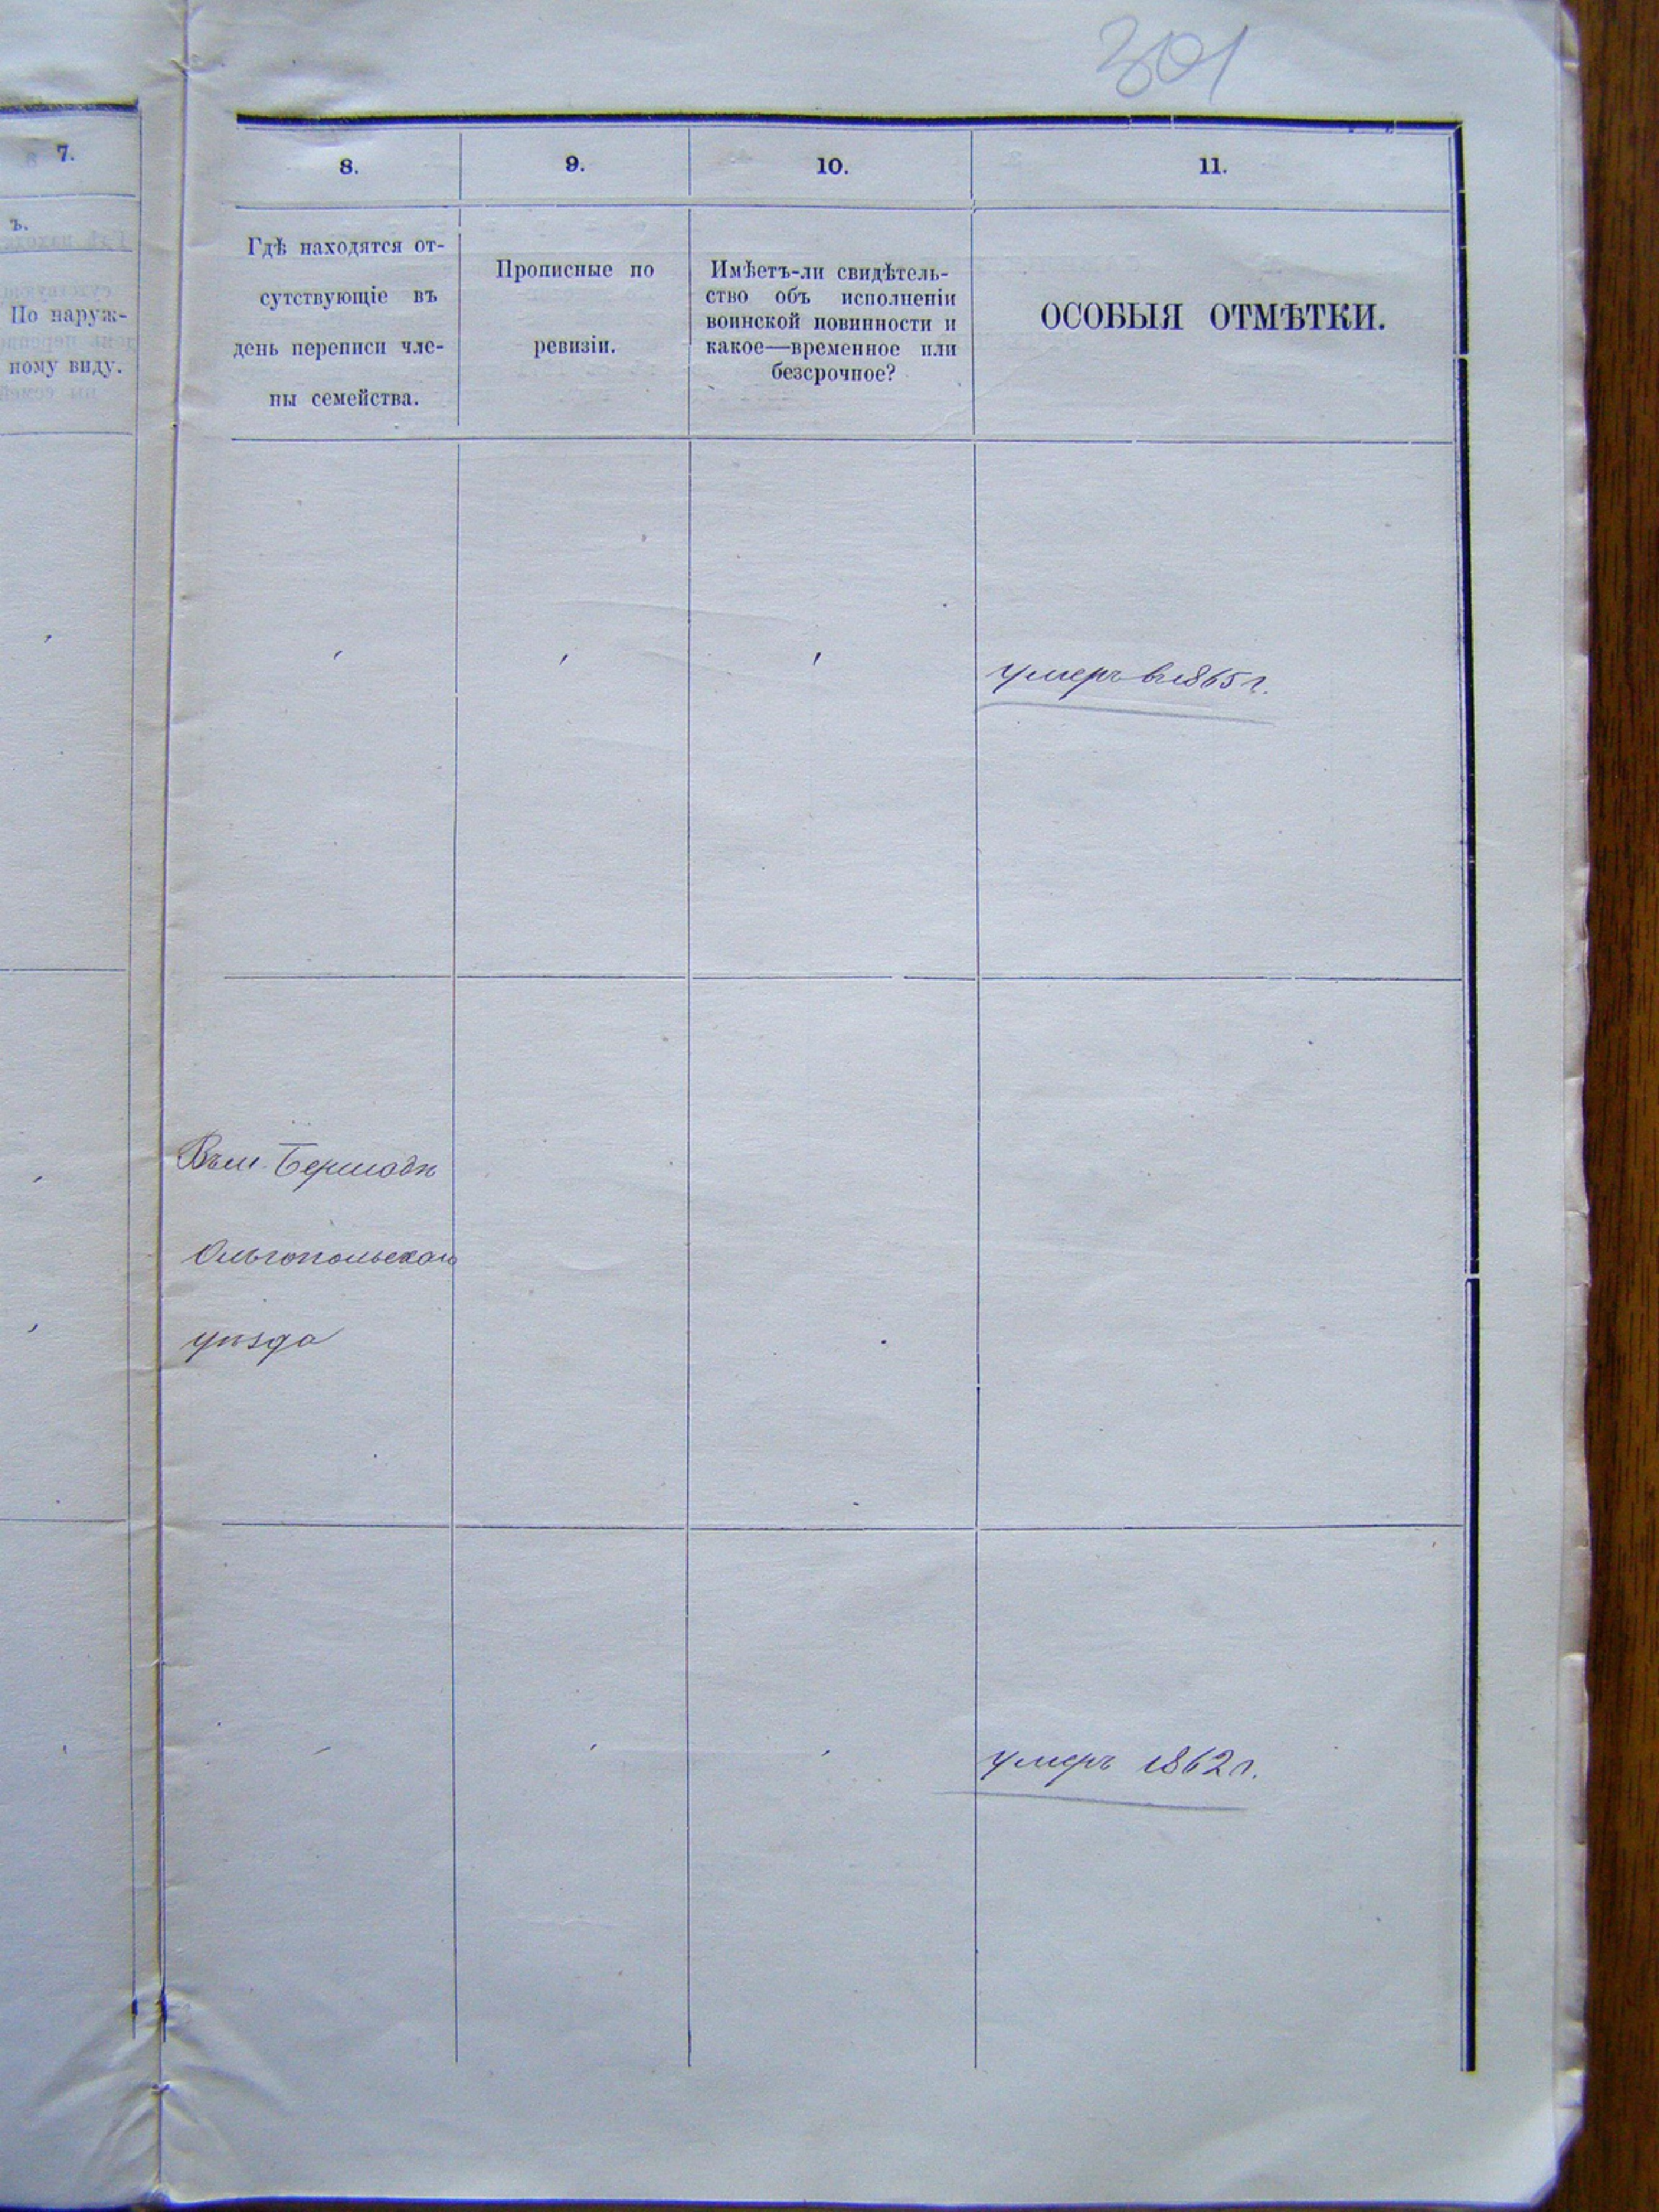 301
7.
8.
9.
10.
11.
ъ.
По наруж-
ному виду.
Гдѣ находятся от-
сутствующіе въ
день переписи чле-
ны семейства.
Прописные по
ревизіи.
Имѣетъ-ли свидѣтель-
ство объ исполненіи
воинской повинности и
какое—временное или
безсрочное?
ОСОБЫЯ ОТМѢТКИ.
умеръ в 1865 г.
Въ м. Бершадѣ
Ольгопольскаго
уѣзда
умеръ 1862 г.